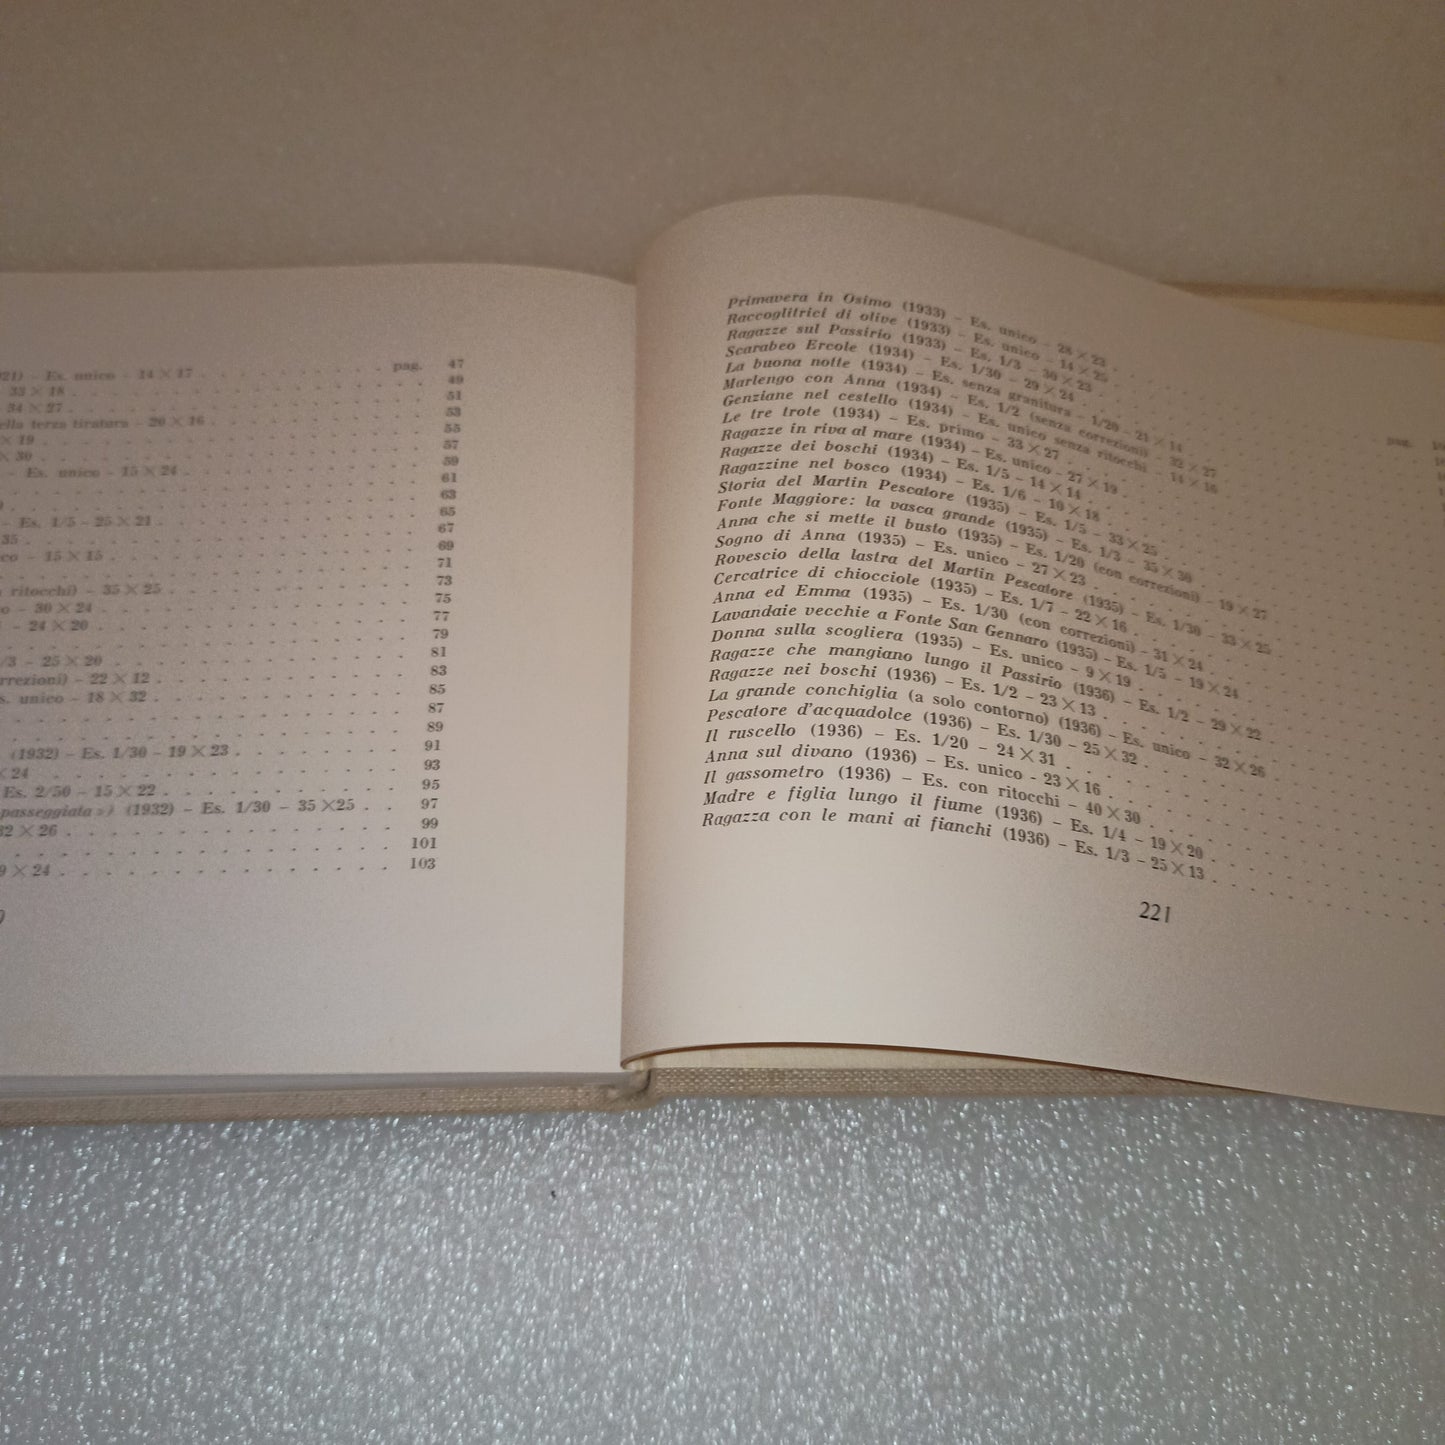 pag. 47
21) – Es. unico – 14 × 17 49
– 33 × 18 51
– 34 × 27 53
ella terza tiratura – 20 × 16 55
× 19 57
× 30 59
– Es. unico – 15 × 24 61
63
) 65
– Es. 1/5 – 25 × 21 67
35 69
co – 15 × 15 71
73
ritocchi) – 35 × 25 75
o – 30 × 24 77
– 24 × 20 79
81
/3 – 25 × 20 83
rrezioni) – 22 × 12 85
s. unico – 18 × 32 87
89
(1932) – Es. 1/30 – 19 × 23 91
× 24 93
Es. 2/50 – 15 × 22 95
passeggiata ») (1932) – Es. 1/30 – 35 × 25 97
32 × 26 99
101
9 × 24 103
Primavera in Osimo (1933) – Es. unico – 28 × 23
Raccoglitrici di olive (1933) – Es. unico – 14 × 25
Ragazze sul Passirio (1933) – Es. 1/3 – 30 × 23
Scarabeo Ercole (1934) – Es. 1/30 – 29 × 24
La buona notte (1934) – Es. senza granitura – 1/20 – 21 × 14 pag.
Marlengo con Anna (1934) – Es. 1/2 (senza correzioni) – 32 × 27
Genziane nel cestello (1934) – Es. unico senza ritocchi – 14 × 16
Le tre trote (1934) – Es. primo – 33 × 27
Ragazze in riva al mare (1934) – Es. unico – 27 × 19
Ragazze dei boschi (1934) – Es. 1/5 – 14 × 14
Ragazzine nel bosco (1934) – Es. 1/6 – 10 × 18
Storia del Martin Pescatore (1935) – Es. 1/5 – 33 × 25
Fonte Maggiore: la vasca grande (1935) – Es. 1/3 – 35 × 30
Anna che si mette il busto (1935) – Es. 1/20 (con correzioni) – 19 × 27
Sogno di Anna (1935) – Es. unico – 27 × 23
Rovescio della lastra del Martin Pescatore (1935) – Es. 1/30 – 33 × 25
Cercatrice di chiocciole (1935) – Es. 1/7 – 22 × 16
Anna ed Emma (1935) – Es. 1/30 (con correzioni) – 31 × 24
Lavandaie vecchie a Fonte San Gennaro (1935) – Es. 1/5 – 19 × 24
Donna sulla scogliera (1935) – Es. unico – 9 × 19
Ragazze che mangiano lungo il Passirio (1936) – Es. 1/2 – 29 × 22
Ragazze nei boschi (1936) – Es. 1/2 – 23 × 13
La grande conchiglia (a solo contorno) (1936) – Es. unico – 32 × 26
Pescatore d'acquadolce (1936) – Es. 1/30 – 25 × 32
Il ruscello (1936) – Es. 1/20 – 24 × 31
Anna sul divano (1936) – Es. unico - 23 × 16
Il gassometro (1936) – Es. con ritocchi – 40 × 30
Madre e figlia lungo il fiume (1936) – Es. 1/4 – 19 × 20
Ragazza con le mani ai fianchi (1936) – Es. 1/3 – 25 × 13
221